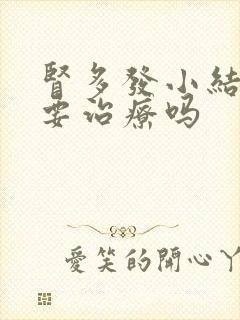 腎多發小結
要治療嗎
愛笑的開心丫